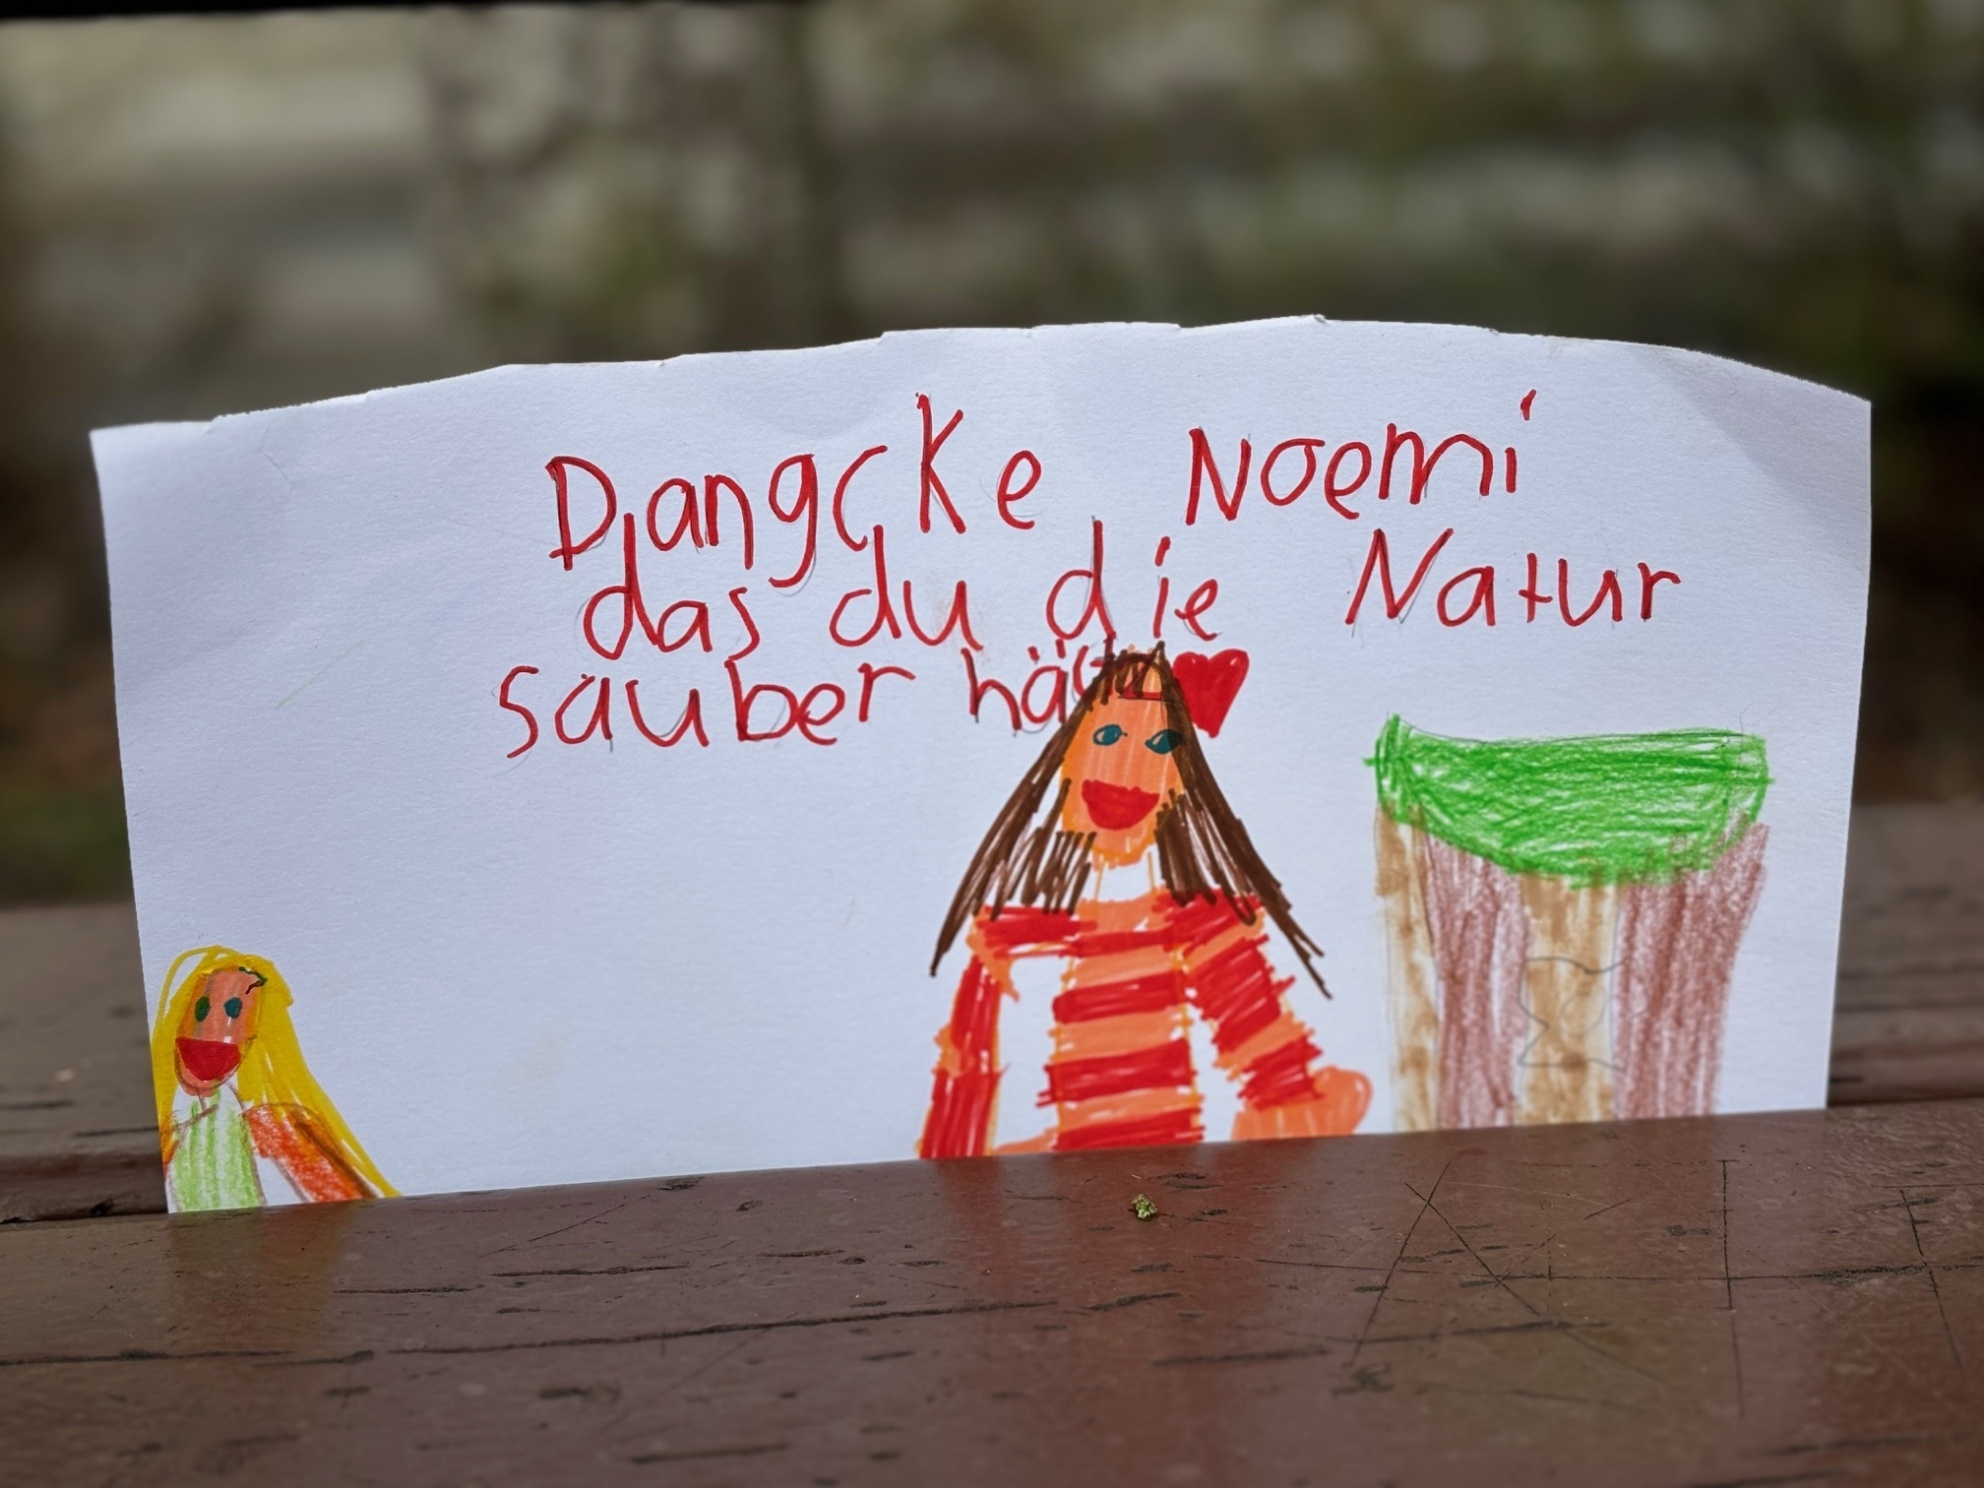 Dangcke Noemi
das du die Natur
sauber